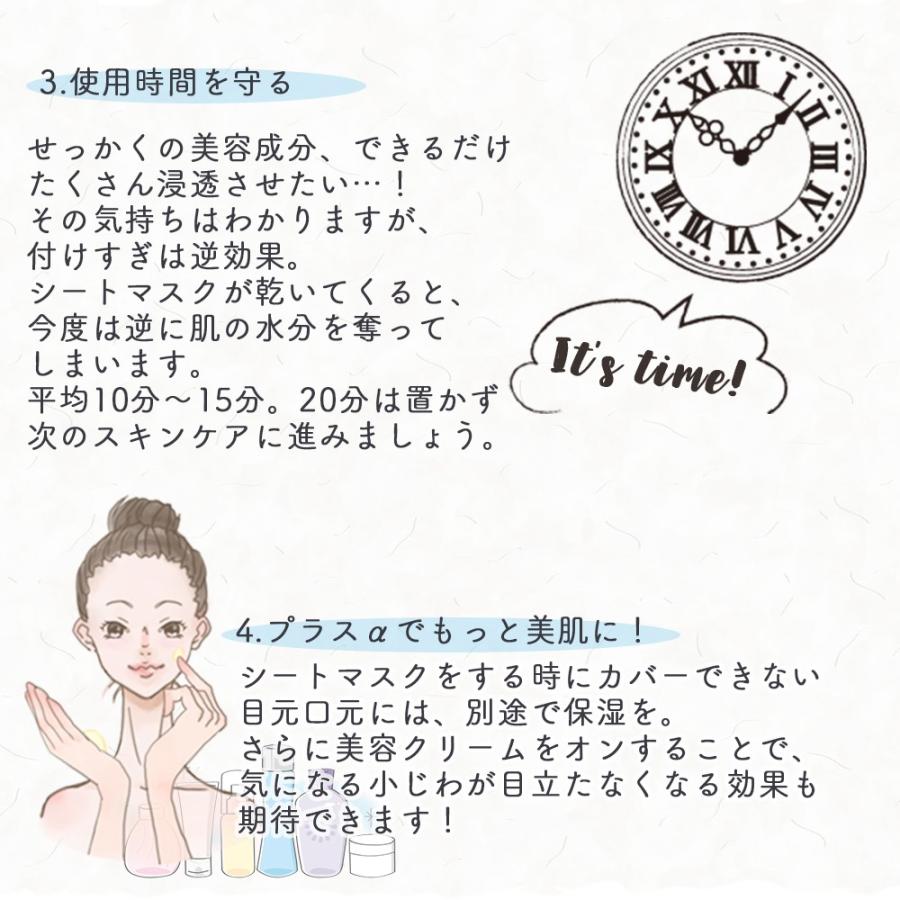 3.使用時間を守る
せっかくの美容成分、できるだけ
たくさん浸透させたい…！
その気持ちはわかりますが、
付けすぎは逆効果。
シートマスクが乾いてくると、
今度は逆に肌の水分を奪って
しまいます。
平均10分～15分。20分は置かず
次のスキンケアに進みましょう。
XII
I
II
III
IV
V
VI
VII
VIII
IX
X
XI
It's time!
4.プラスαでもっと美肌に！
シートマスクをする時にカバーできない
目元口元には、別途で保湿を。
さらに美容クリームをオンすることで、
気になる小じわが目立たなくなる効果も
期待できます！